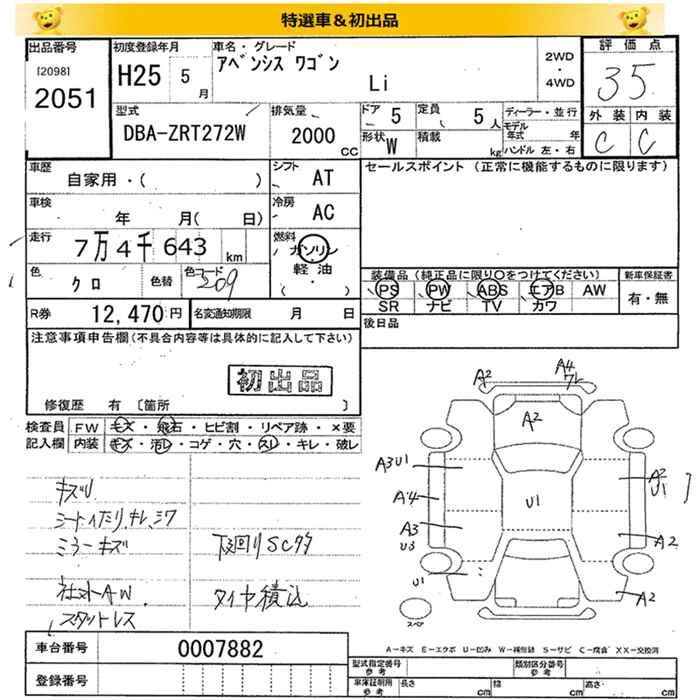 特選車&初出品
出品番号
[2098]
2051
初度登録年月
H25 5 月
車名・グレード
アベンシス ワゴン
Li
2WD
・
4WD
評価点
35
型式
DBA-ZRT272W
排気量
2000 cc
ドア 5
定員 5 人
形状 W
積載 kg
ディーラー・並行
モデル年式 年
ハンドル 左・右
外装 内装
C C
車歴
自家用・( )
シフト AT
セールスポイント (正常に機能するものに限ります)
車検
年 月( 日)
冷房 AC
走行
7万4千643 km
燃料
ガソリン
軽油
( ・ )
色
クロ
色替
色コード 209
装備品 (純正品に限り○をつけてください)
新車保証書
PS PW ABS エアB AW
SR ナビ TV カワ
有・無
R券 12,470 円
名変通知期限 月 日
後日品
注意事項申告欄 (不具合内容等は具体的に記入して下さい)
初出品
修復歴 有 〔箇所 〕
検査員記入欄
FW キズ・飛石・ヒビ割・リペア跡・×要
内装 キズ・汚レ・コゲ・穴・スレ・キレ・破レ
キズU
シートイタミ、キレ、シワ
ミラーキズ
下回りSCサ
社外AW
タイヤ積込
スタットレス
A2
A4
ワレ
A2
A3U1
A4
A3
U3
U1
U1
A2
U1
A2
A2
スペア
A-キズ E-エクボ U-凹み W-補修跡 S-サビ C-腐食 XX-交換済
車台番号 0007882
登録番号
型式指定番号 参考
類別区分番号 参考
車庫証明用 参考
長さ cm
幅 cm
高さ cm